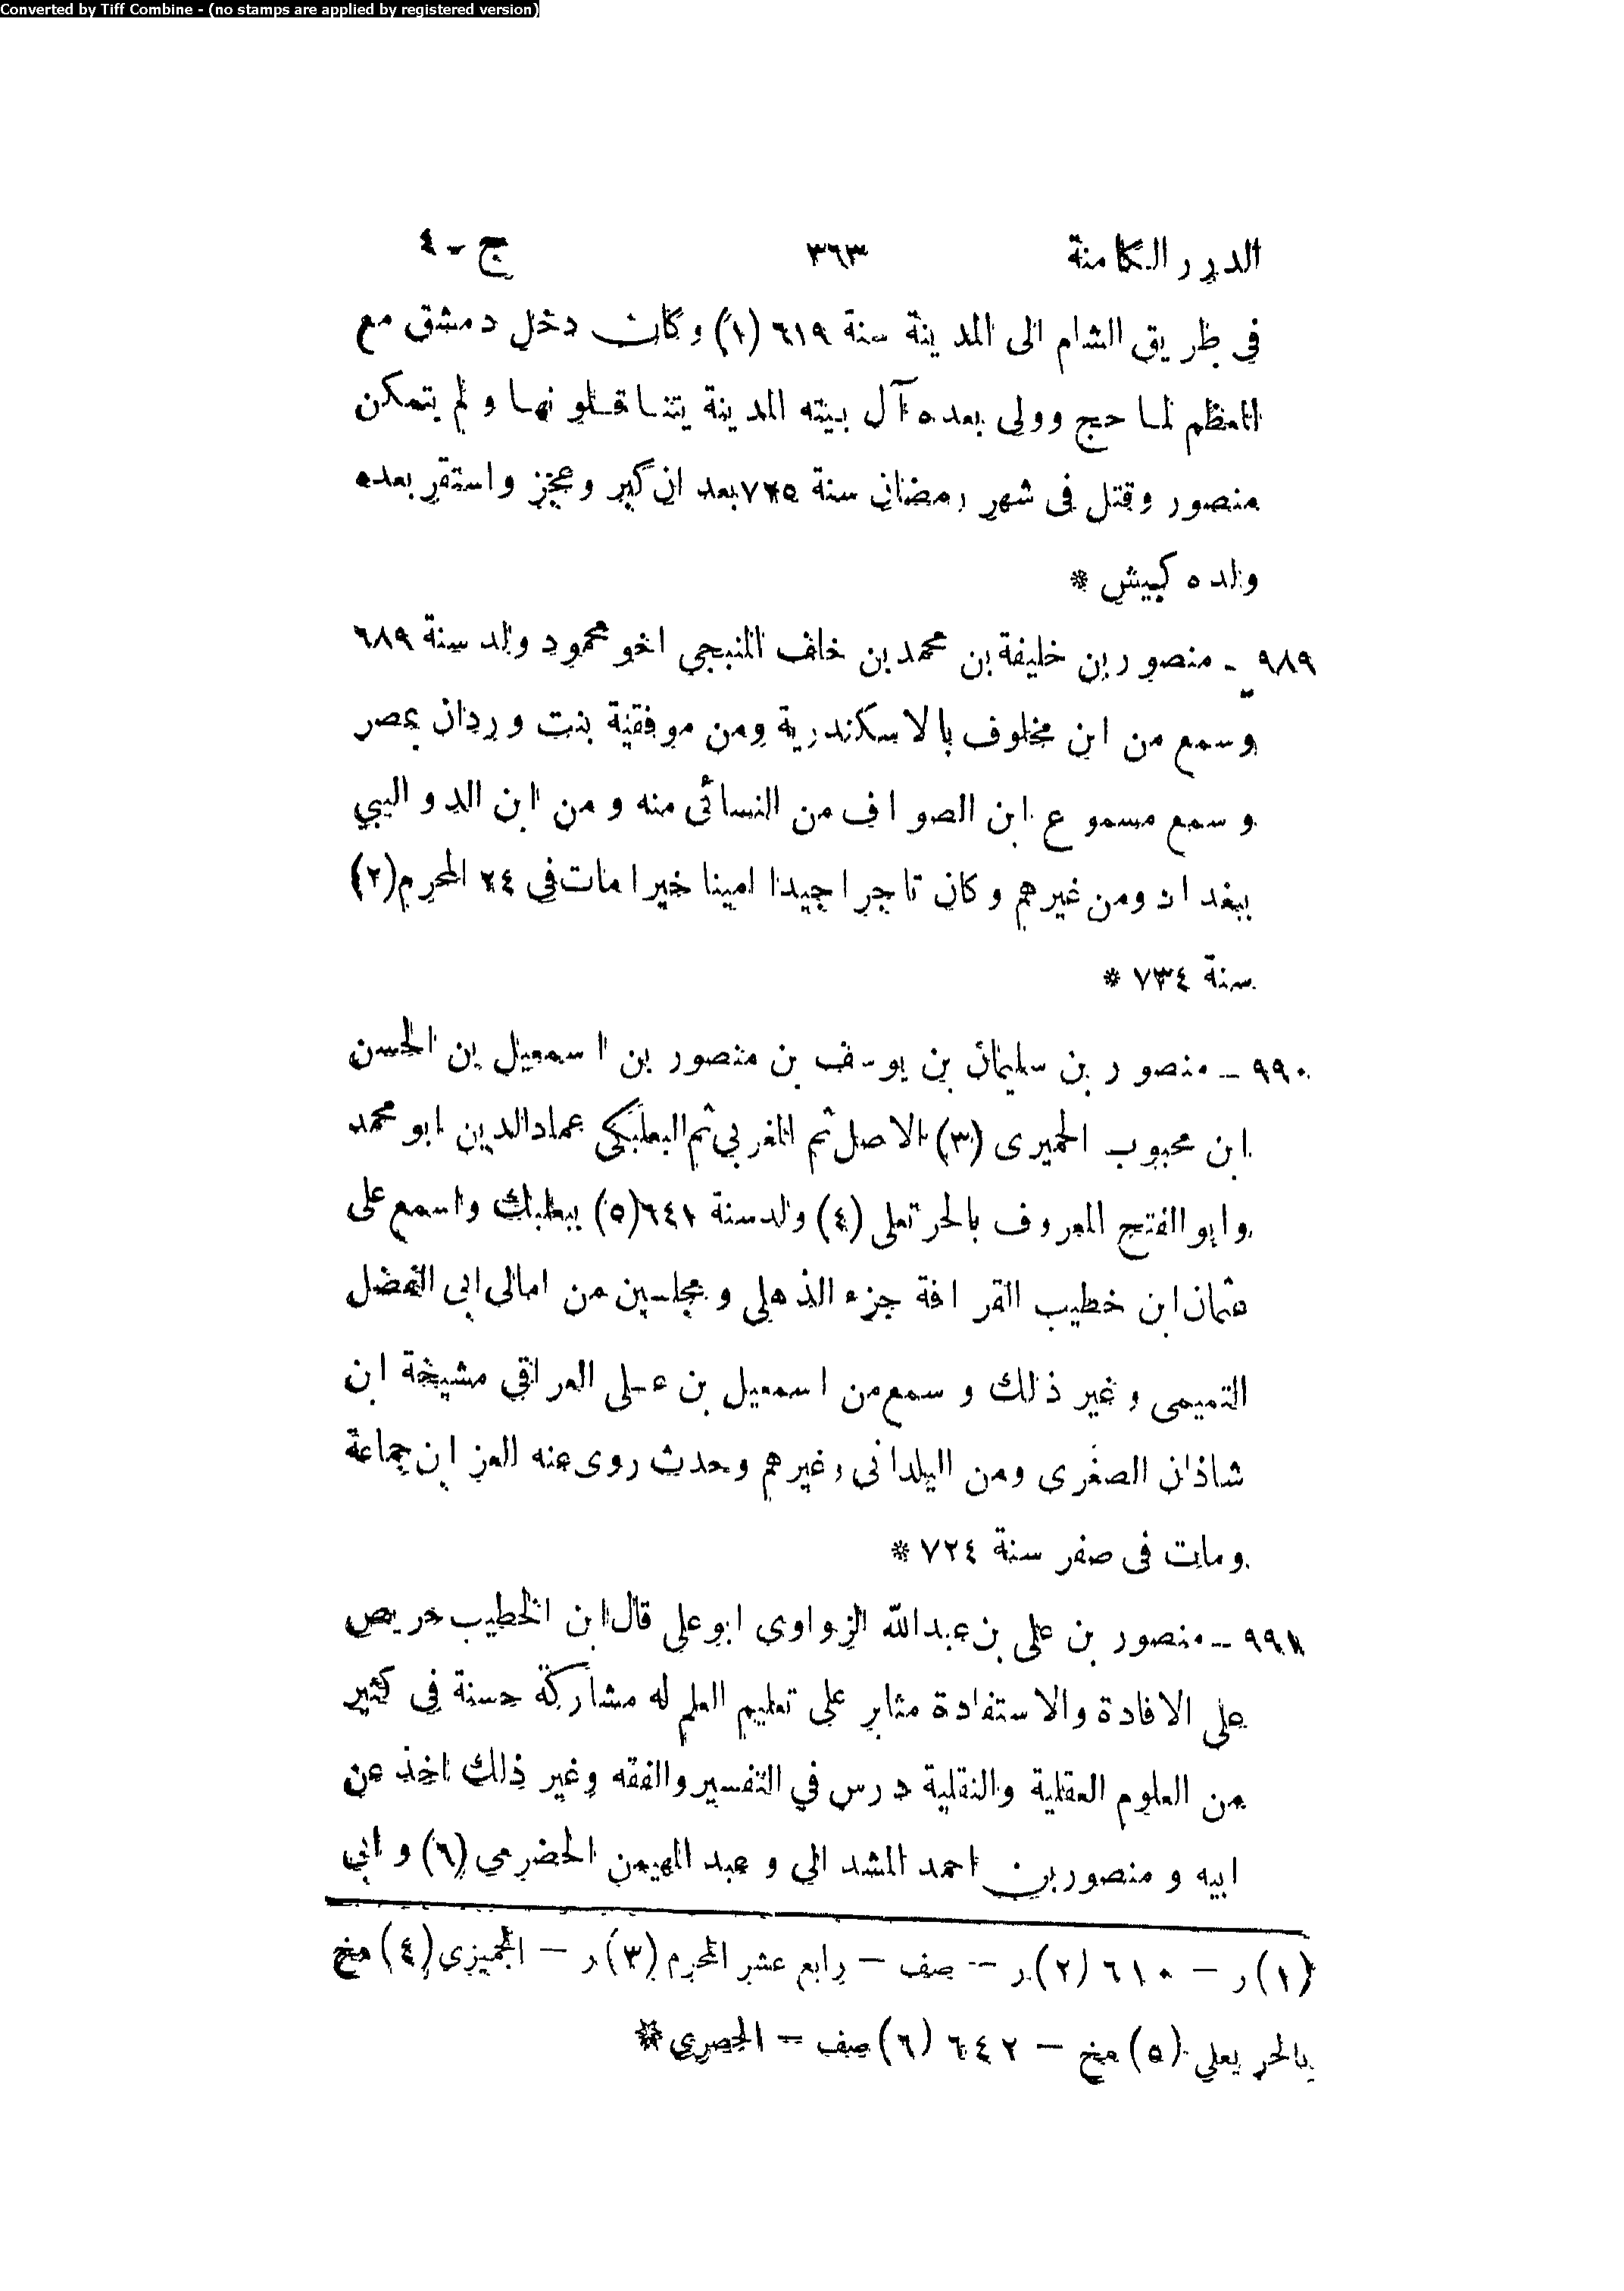 Converted by Tiff Combine - (no stamps are applied by registered version)
الدرر الكامنة ٣٦٣ ج - ٤
فى طريق الشام الى المدينة سنة ٦١٩ (١) وكان دخل دمشق مع
المعظم لما حج وولى بعده آل بيته المدينة يتناقلونها ولم يتمكن
منصور وقتل فى شهر رمضان سنة ٧٢٥ بعد ان كبر وعجز واستقر بعده
ولده كبيش *
٩٨٩ - منصور بن خليفة بن محمد بن خلف المنبجى اخو محمود ولد سنة ٦٨٩
وسمع من ابن مخلوف بالاسكندرية ومن موفقية بنت وردان بمصر
وسمع مسموع ابن الصواف من النسائى منه ومن ابن الدواليبي
ببغداد ومن غيرهم وكان تاجرا جيدا امينا خيرا مات فى ٢٤ المحرم (٢)
سنة ٧٣٤ *
٩٩٠ - منصور بن سليمان بن يوسف بن منصور بن اسمعيل بن الحسن
ابن محبوب الحميرى (٣) الاصل ثم المغربي ثم البعلبكى عماد الدين ابو محمد
وابو الفتح المعروف بالحر تعلى (٤) ولد سنة ٦٤١ (٥) ببعلبك واسمع على
عثمان ابن خطيب القرافة جزء الذهلى ومجلسين من امالى ابى الفضل
التميمى وغير ذلك وسمع من اسمعيل بن على العراقي مشيخة ابن
شاذان الصغرى ومن اليلدانى وغيرهم وحدث روى عنه العز ابن جماعة
ومات فى صفر سنة ٧٢٤ *
٩٩١ - منصور بن على بن عبدالله الزواوى ابو على قال ابن الخطيب حريص
على الافادة والاستفادة مثابر على تعليم العلم له مشاركة حسنة فى كثير
من العلوم العقلية والنقلية درس في التفسير والفقه وغير ذلك اخذ عن
ابيه ومنصور بن احمد المشدالي وعبد المهيمن الحضرمي (٦) وابي
(١) ر - ٦١٠ (٢) ر - صف - رابع عشر المحرم (٣) ر - الجميزى (٤) مخ
بالحر يعلي (٥) مخ - ٦٤٢ (٦) صف - الحصرى *